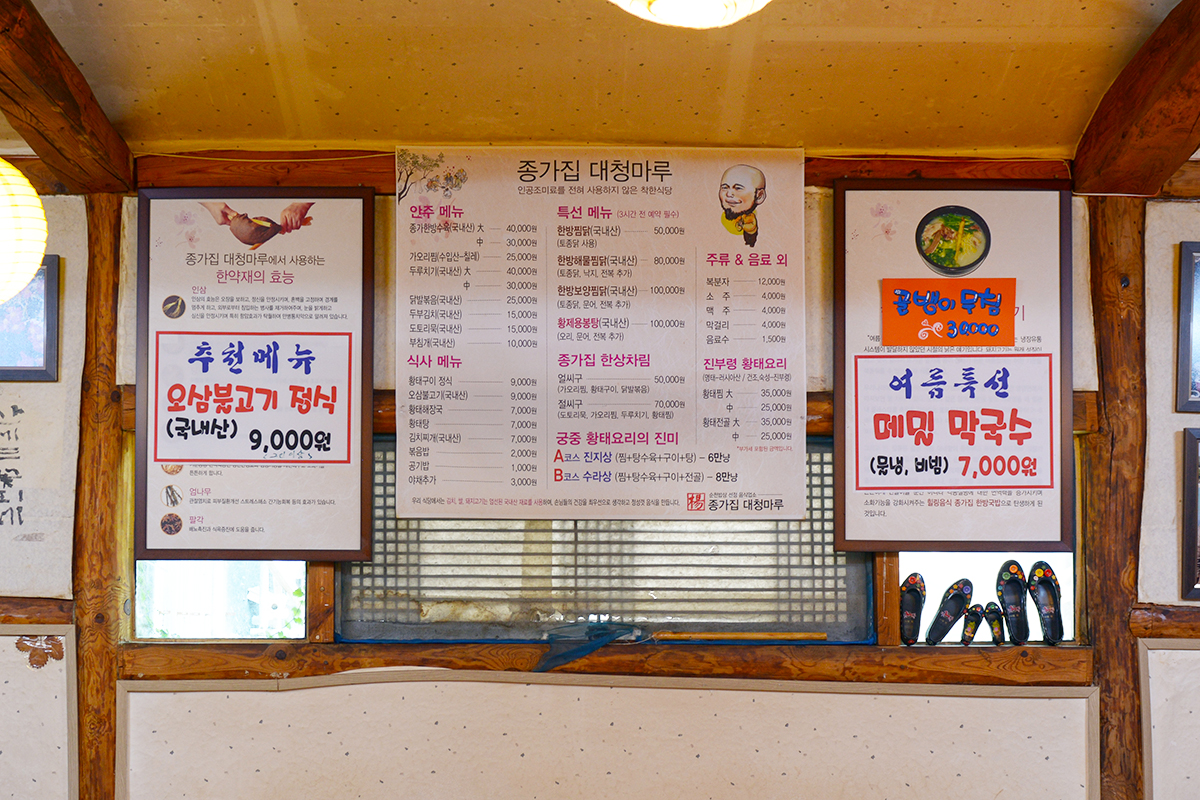 종가집 대청마루에서 사용하는
한약재의 효능
인삼
추천메뉴
오삼불고기 정식
(국내산) 9,000원
엄나무
팔각
종가집 대청마루
인공조미료를 전혀 사용하지 않은 착한식당
안주 메뉴
종가한방수육(국내산) 大 40,000원
中 30,000원
가오리찜(수입산-칠레) 25,000원
두루치기(국내산) 大 40,000원
中 30,000원
닭발볶음(국내산) 25,000원
두부김치(국내산) 15,000원
도토리묵(국내산) 15,000원
부침개(국내산) 10,000원
식사 메뉴
황태구이 정식 9,000원
오삼불고기(국내산) 9,000원
황태해장국 7,000원
황태탕 7,000원
김치찌개(국내산) 7,000원
볶음밥 2,000원
공기밥 1,000원
야채추가 3,000원
특선 메뉴 (3시간 전 예약 필수)
한방찜닭(국내산) 50,000원
(토종닭 사용)
한방해물찜닭(국내산) 80,000원
(토종닭, 낙지, 전복 추가)
한방보양찜닭(국내산) 100,000원
(토종닭, 문어, 전복 추가)
황제용봉탕(국내산) 100,000원
(오리, 문어, 전복 추가)
종가집 한상차림
얼씨구 50,000원
(가오리찜, 황태구이, 닭발볶음)
절씨구 70,000원
(도토리묵, 가오리찜, 두루치기, 황태찜)
궁중 황태요리의 진미
A코스 진지상 (찜+탕수육+구이+탕) – 6만냥
B코스 수라상 (찜+탕수육+구이+전골) – 8만냥
주류 & 음료 외
복분자 12,000원
소 주 4,000원
맥 주 4,000원
막걸리 4,000원
음료수 1,500원
진부령 황태요리
(명태-러시아산 / 건조,숙성-진부령)
황태찜 大 35,000원
中 25,000원
황태전골 大 35,000원
中 25,000원
*부가세 포함된 금액입니다.
우리 식당에서는 김치, 쌀, 돼지고기는 엄선된 국내산 재료를 사용하며, 손님들의 건강을 최우선으로 생각하고 정성껏 음식을 만듭니다.
종가집 대청마루
골뱅이 무침
30000
여름특선
메밀 막국수
(물냉, 비빔) 7,000원
소화기능을 강화시켜주는 힐링음식 종가집 한방국밥으로 탄생하게 된
것입니다.